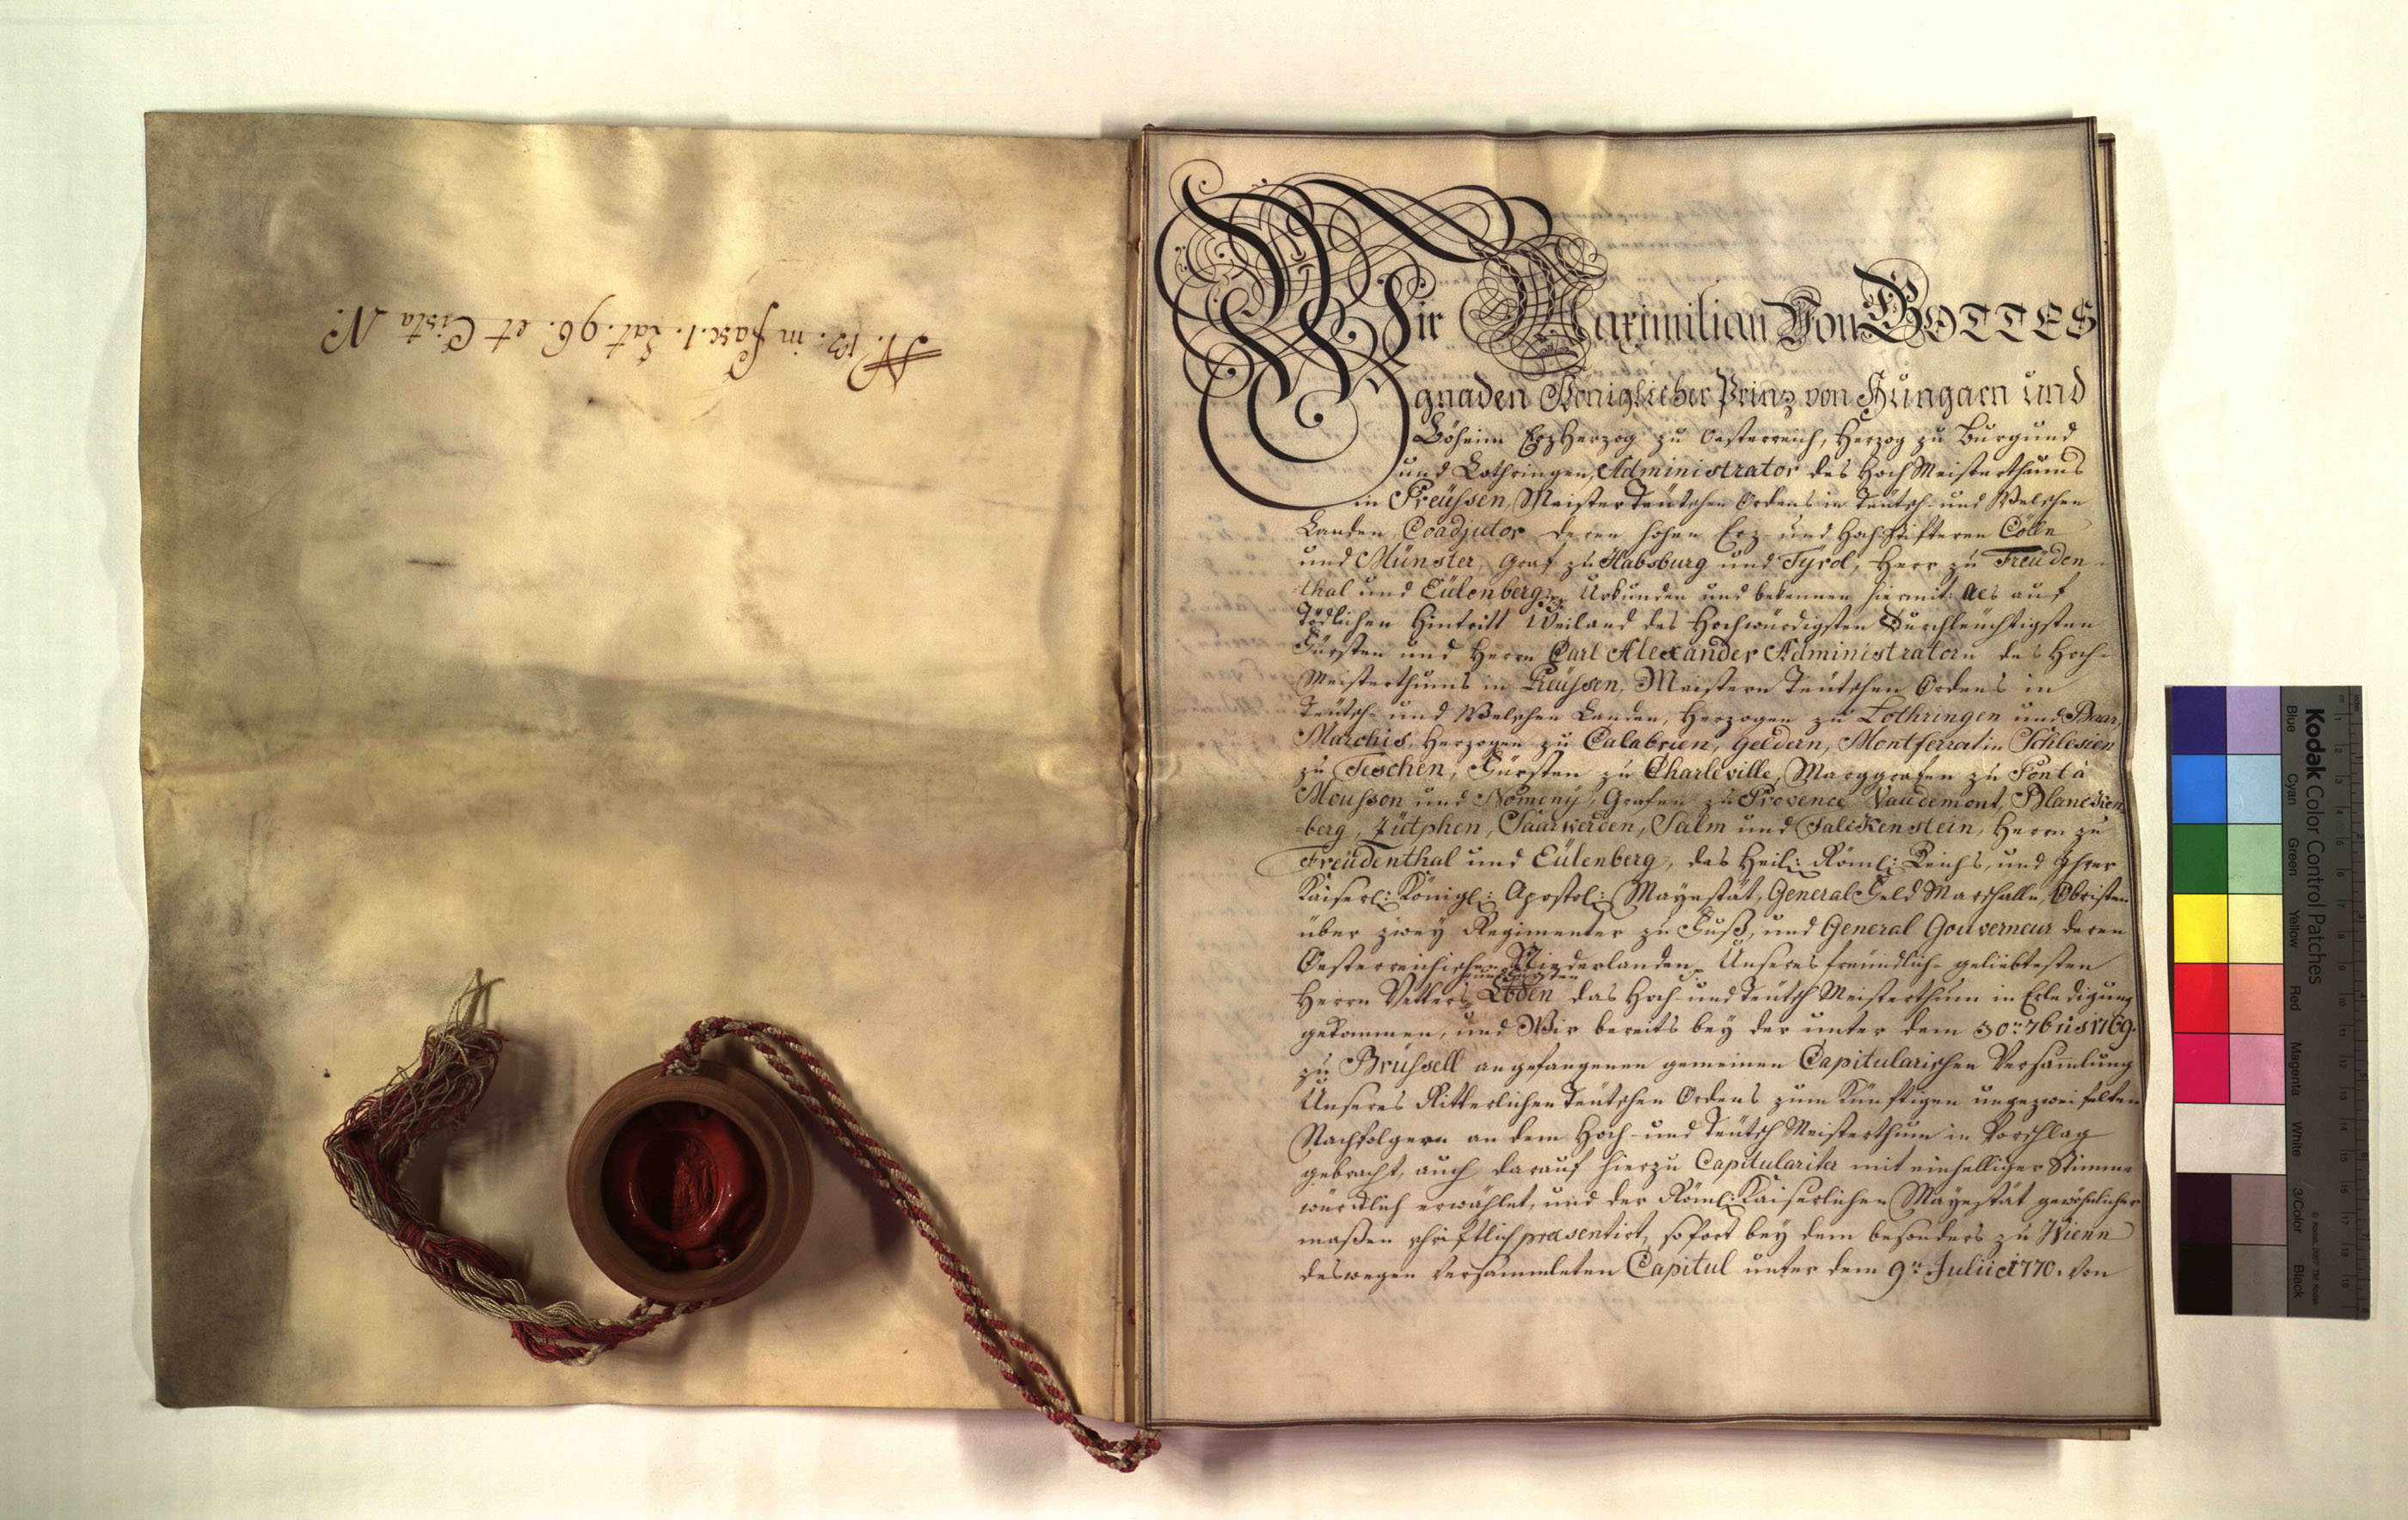 N. 13. in fasc. 1. Lat. 96. et Cista N.
Wir Maximilian Von GOTTES
gnaden Königlicher Prinz von Hungarn und
Böheim ErzHerzog zu Oesterreich, Herzog zu Burgund
und Lothringen, Administrator des HochMeisterthums
in Preüssen, Meister Teütschen Ordens in Teütsch- und Welschen
Landen, Coadjutor deren hohen Erz- und Hoch-Stifteren Cölln
und Münster, Graf zu Habsburg und Tyrol, Herr zu Freüden-
thal und Eülenberg Urkunden und bekennen hiermit: als auf
Tödlichen Hintritt Weiland des Hochwürdigsten Durchleüchtigsten
Fürsten und Herrn Carl Alexander Administratorn des Hoch-
Meisterthums in Preüssen, Meistern Teütschen Ordens in
Teütsch- und Welschen Landen, Herzogen zu Lothringen und Baar,
Marchis, Herzogen zu Calabrien, Geldern, Montferrat in Schlesien
zu Teschen, Fürsten zu Charleville, Marggrafen zu Pont à
Mousson und Nomeny, Grafen zu Provence Vaudemont, Blancken
berg, Zütphen, Saarwerden, Salm und Falckenstein, Herrn zu
Freüdenthal und Eülenberg, des Heil: Röml: Reichs, und Ihrer
Kaiserl: Königl: Apostol: Mayestät, General Feld Marschalln, Obristen
über zwey Regimenter zu Fuß, und General Gouverneur deren
Oesterreichischen Niederlanden, Unseres freündlich- geliebtesten
Herrn Vetters Lbden das Hoch- und Teütsch Meisterthum in Erledigung
gekommen, und Wir bereits bey der unter dem 30n 7bris 1769.
zu Brüssell angefangenen gemeinen Capitularischen Versam̄lung
Unseres Ritterlichen Teütschen Ordens zum Künftigen ungezweifelten
Nachfolgern an dem Hoch- und Teütsch Meisterthum in Vorschlag
gebracht, auch darauf hierzu Capitulariter mit einhelliger Stimme
würcklich erwählet, und der Röml: Kaiserlichen Mayestät gewöhnlicher
maßen schriftlich præsentirt, sofort bey dem besonders zu Wienn
deswegen versammleten Capitul unter dem 9n Julii 1770. von
Kodak Color Control Patches
Blue Cyan Green Yellow Red Magenta White 3/Color Black